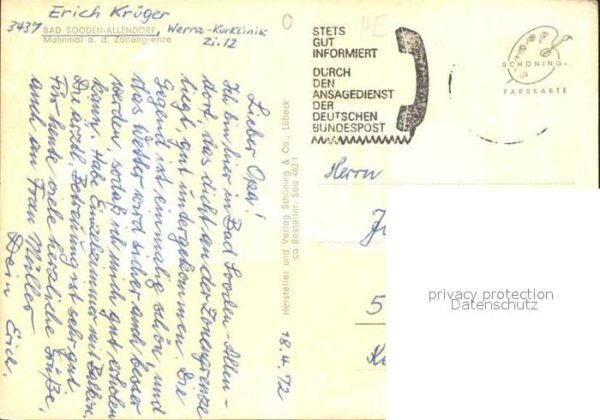 Erich Krüger
3437 BAD SOODEN-ALLENDORF, Werra-Kurklinik
Mahnmal a. d. Zonengrenze Zi. 12
Lieber Opa!
Ich bin hier in Bad Sooden-Allen-
dorf, das dicht an der Zonengrenze
liegt, gut untergekommen. Die
Gegend ist einmalig schön, und
das Wetter wird sicher auch besser
werden, sodaß ich mich gut erholen
kann. Habe Einzelzimmer mit Balkon.
Die ärztl. Betreuung ist sehr gut.
Für heute viele herzliche Grüße,
auch an Frau Müller
Dein Erich.
18.4.72
Hersteller und Verlag Schöning & Co., Lübeck
Bestellnr. Soo
STETS
GUT
INFORMIERT
DURCH
DEN
ANSAGEDIENST
DER
DEUTSCHEN
BUNDESPOST
HE
SCHÖNING
FARBKARTE
Herrn
5
privacy protection
Datenschutz